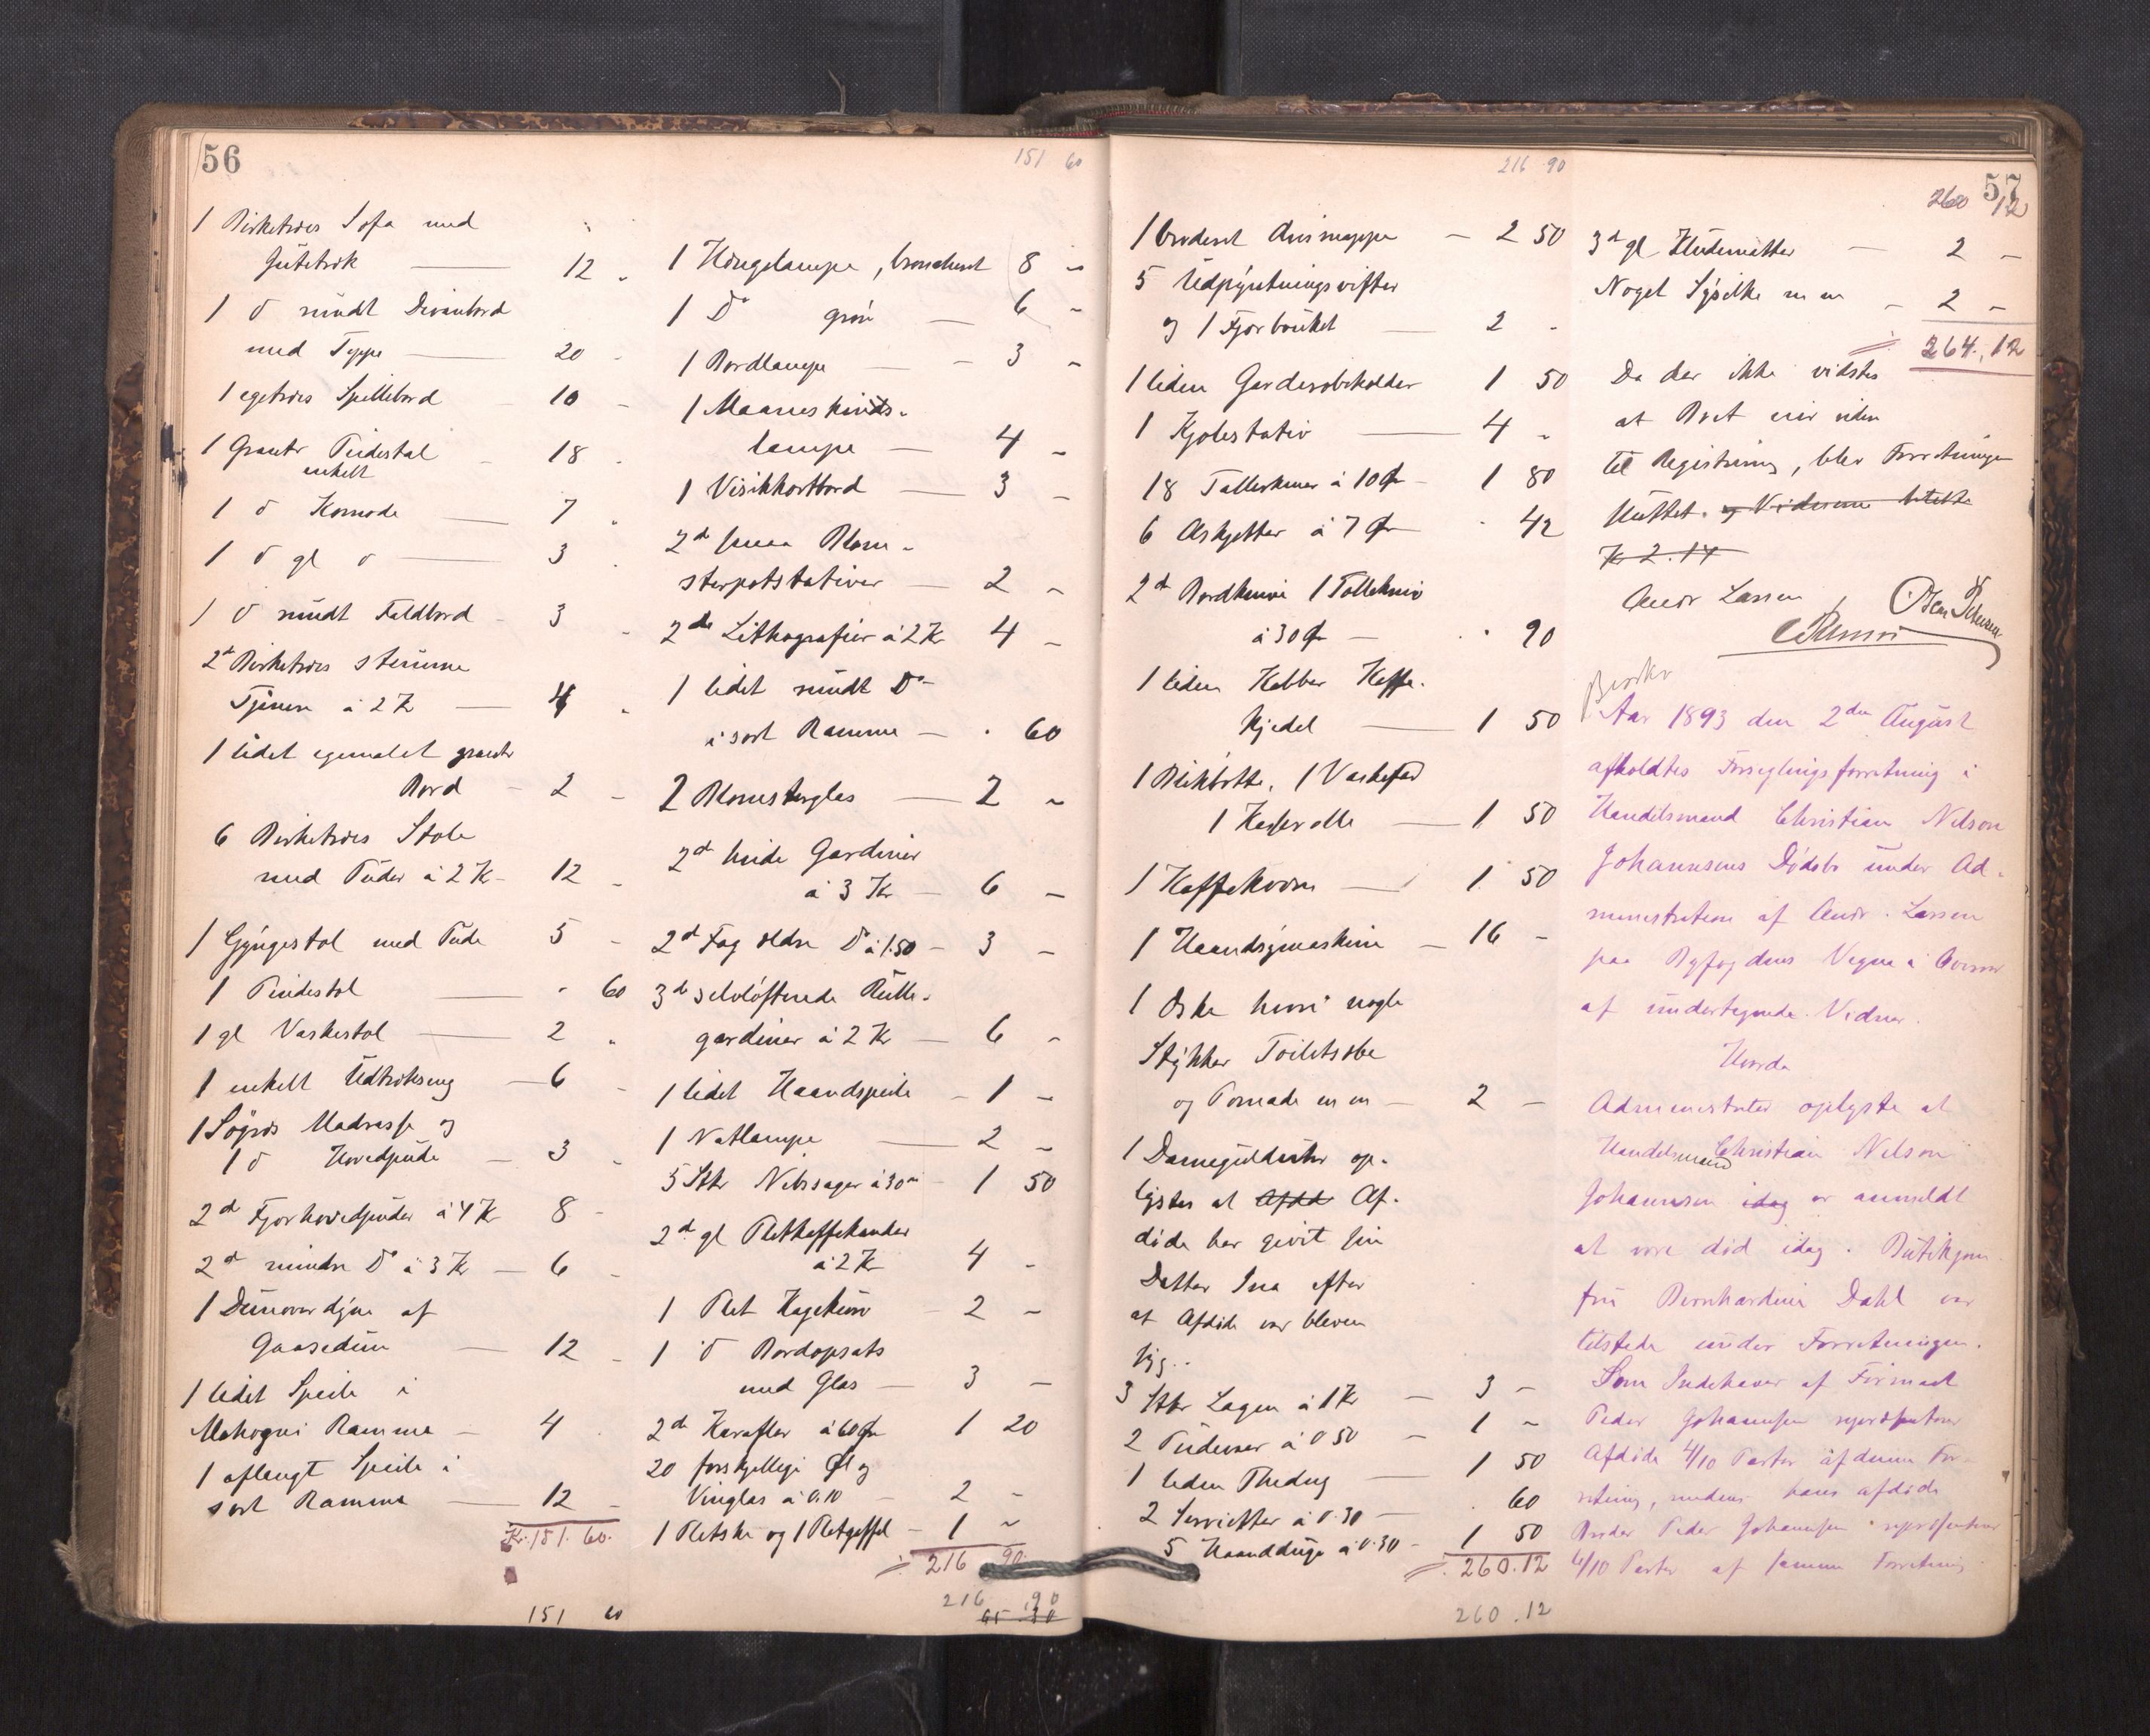 56
151 60
1 Birketræes Sofa med
Jutetræk — 12 -
1 d rundt Divanbord
med Teppe — 20 -
1 egetræes Spillebord - 10 -
1 Grantr Pidestal - 18 -
enkelt
1 d Komode — 7 -
1 d gl d — 3 -
1 d rundt Foldbord - 3 -
2d Birketræes stumme
Tjenere à 2 Kr — 4 -
1 lidet egemalet grantr
Bord - 2 -
6 Birketræes Stole
med Puder à 2 Kr - 12 -
1 Gyngestol med Pude 5 -
1 Pindestol — - 60
1 gl Vaskestol — 2 -
1 enkelt Udtræksseng — 6 -
1 Søgræs Madrasse og
1 d Hovedpude — 3 -
2d Fjærhovedpuder à 4 Kr 8 -
2d mindre Do à 3 Kr — 6 -
1 Dunoverdyne af
Gaasedun — 12 -
1 lidet Speile i
Mahogni Ramme — 4 -
1 aflangt Speile i
sort Ramme — 12 -
Kr. 151. 60.
151 60
1 Hængelampe, bronchert 8 -
1 Do grøn — 6 -
1 Bordlampe — 3 -
1 Maaneskins-
lampe — 4 -
1 Visitkortbord — 3 -
2d smaa Blom-
sterpotstativer — 2 -
2de Lithografier à 2 Kr 4 -
1 lidet rundt Do
i sort Ramme — - 60
2 Blomsterglas — 2 -
2d hvide Gardiner
à 3 Kr — 6 -
2d Fag ældre Do à 1.50 — 3 -
3de selvløftende Rulle-
gardiner à 2 Kr — 6 -
1 lidet Haandspeile — 1 -
1 Natlampe — 2 -
5 Stkr Nibssager à 30 — 1 50
2d gl Pletkaffekander
à 2 Kr 4 -
1 Plet Kagekurv — 2 -
1 d Bordopsats
med Glas — 3 -
2de Karafler à 60 Ør 1 20
20 forskjellige Øl og
Vinglas à 0.10 — 2 -
1 Pletske og 1 Pletgaffel — 1 -
216 90.
216 .90
65 30
57
216 90
1 broderet Avismappe — 2 50
5 Udpyntningsvifter
og 1 Fjærbouket — 2 -
1 liden Garderobeholder 1 50
1 Kjolestativ — 4 -
18 Tallerkener à 10 Ør — 1 80
6 Askjetter à 7 Ør - 42
2d Bordknive 1 Tollekniv
à 30 Ør — - 90
1 liden Kobber Kaffe-
kjedel — 1 50
1 Blikbøtte, 1 Vaskefad
1 Kasserolle — 1 50
1 Kaffekværn — 1 50
1 Haandsymaskine — 16 -
1 Æske hvori nogle
Stykker Toiletsæbe
og Pomade m m — 2 -
1 Dameguldur op-
lystes at Afdd Af-
døde har givet sin
Datter Ina efter
at Afdøde var bleven
syg..
3 Stkr Lagen à 1 Kr — 3 -
2 Pudevar à 0 50 — 1 -
1 liden Thedug — 1 50
2 Servietter à 0.30 — . 60
5 Haandduge à 0.30 — 1 50
260.12
260.12
260 12
3d gl Kludematter — 2 -
Noget Sysilke m m — 2 -
264.,12
Da der ikke vidstes
at Boet eier viden
til Registrering, blev Forretningen
sluttet. og Vidnerne betalte
Kr 2.14
Andr Larsen
Aar 1893 den 2den August
afholdtes Forseglingsforretning i
Handelsmand Christian Nelson
Johannsens Dødsbo under Ad-
ministration af Andr. Larsen
paa Byfogdens Vegne i Overvær
af undertegnede Vidner.
Hvorda
Administrator oplyste at
Handelsmand Christian Nelson
Johannsen idag er anmeldt
at være død idag. Butikjom-
fru Bernhardine Dahl var
tilstede under Forretningen.
Som Indehaver af Firmaet
Peder Johannsen repræsenterer
Afdøde 4/10 Parter af denne For-
retning, medens hans afdøde
Broder Peder Johannsen repræsenterer
6/10 Parter af samme Forretning